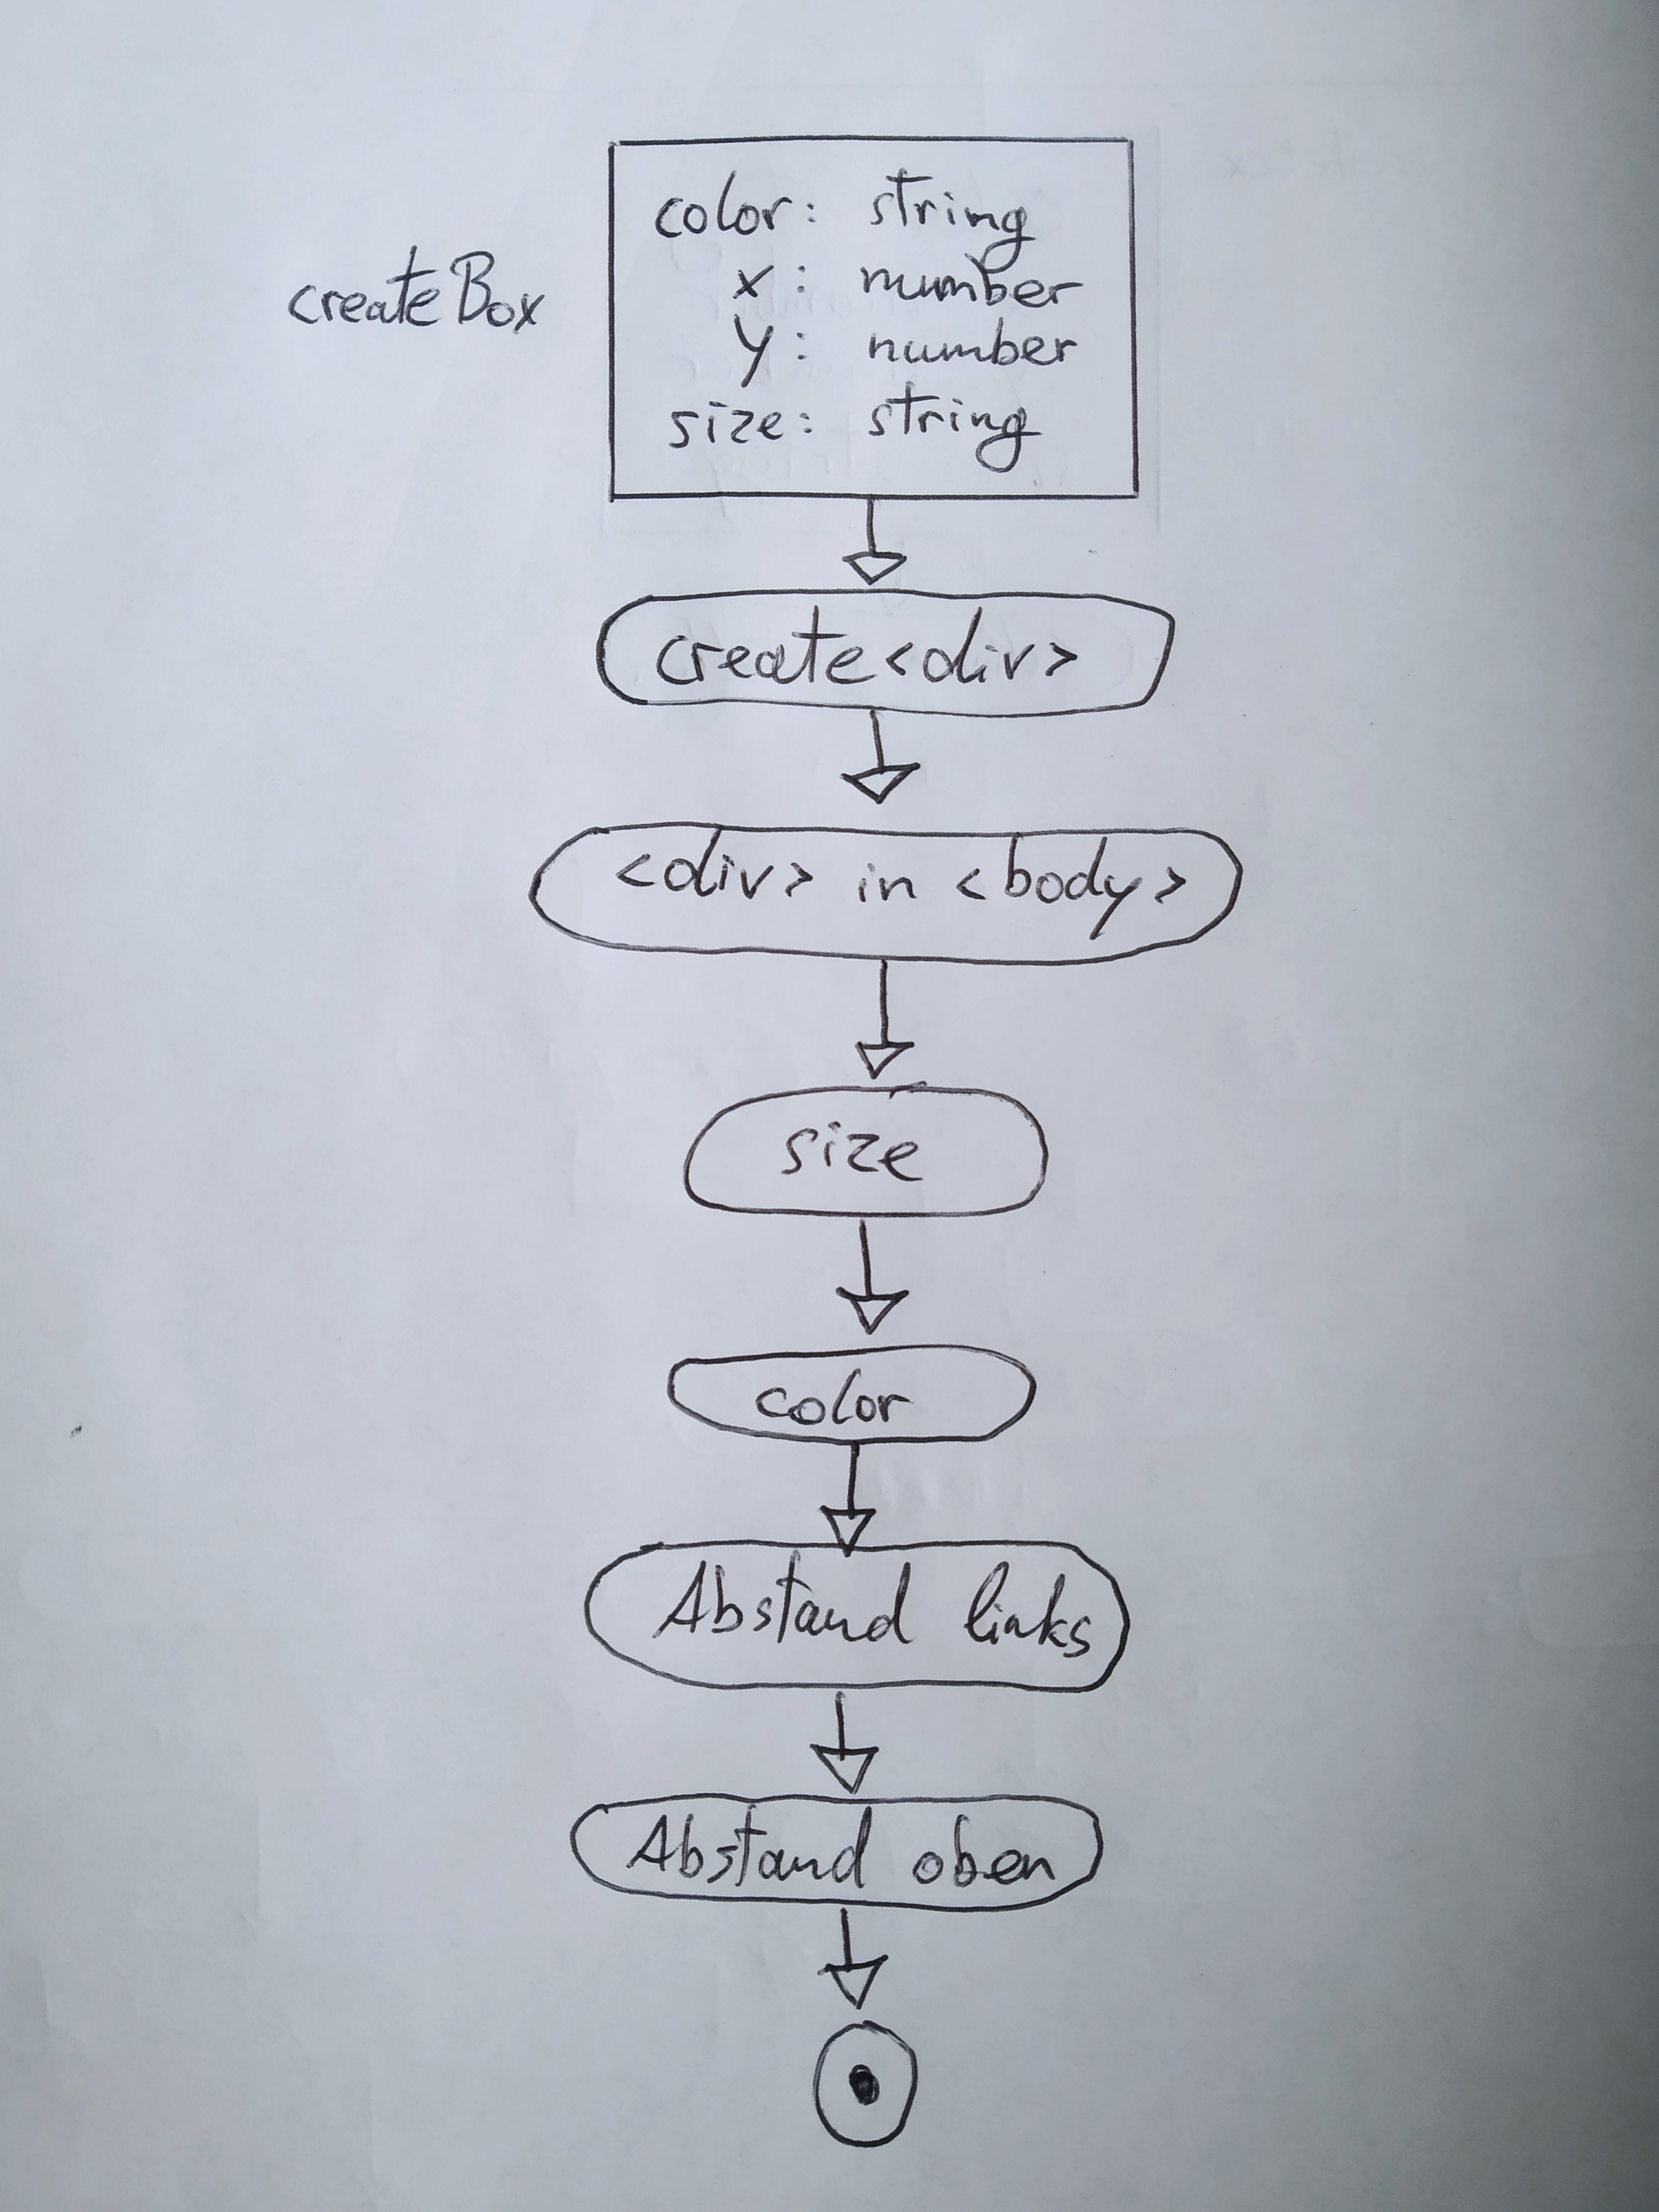 createBox
color: string
x: number
y: number
size: string
create<div>
<div> in <body>
size
color
Abstand links
Abstand oben